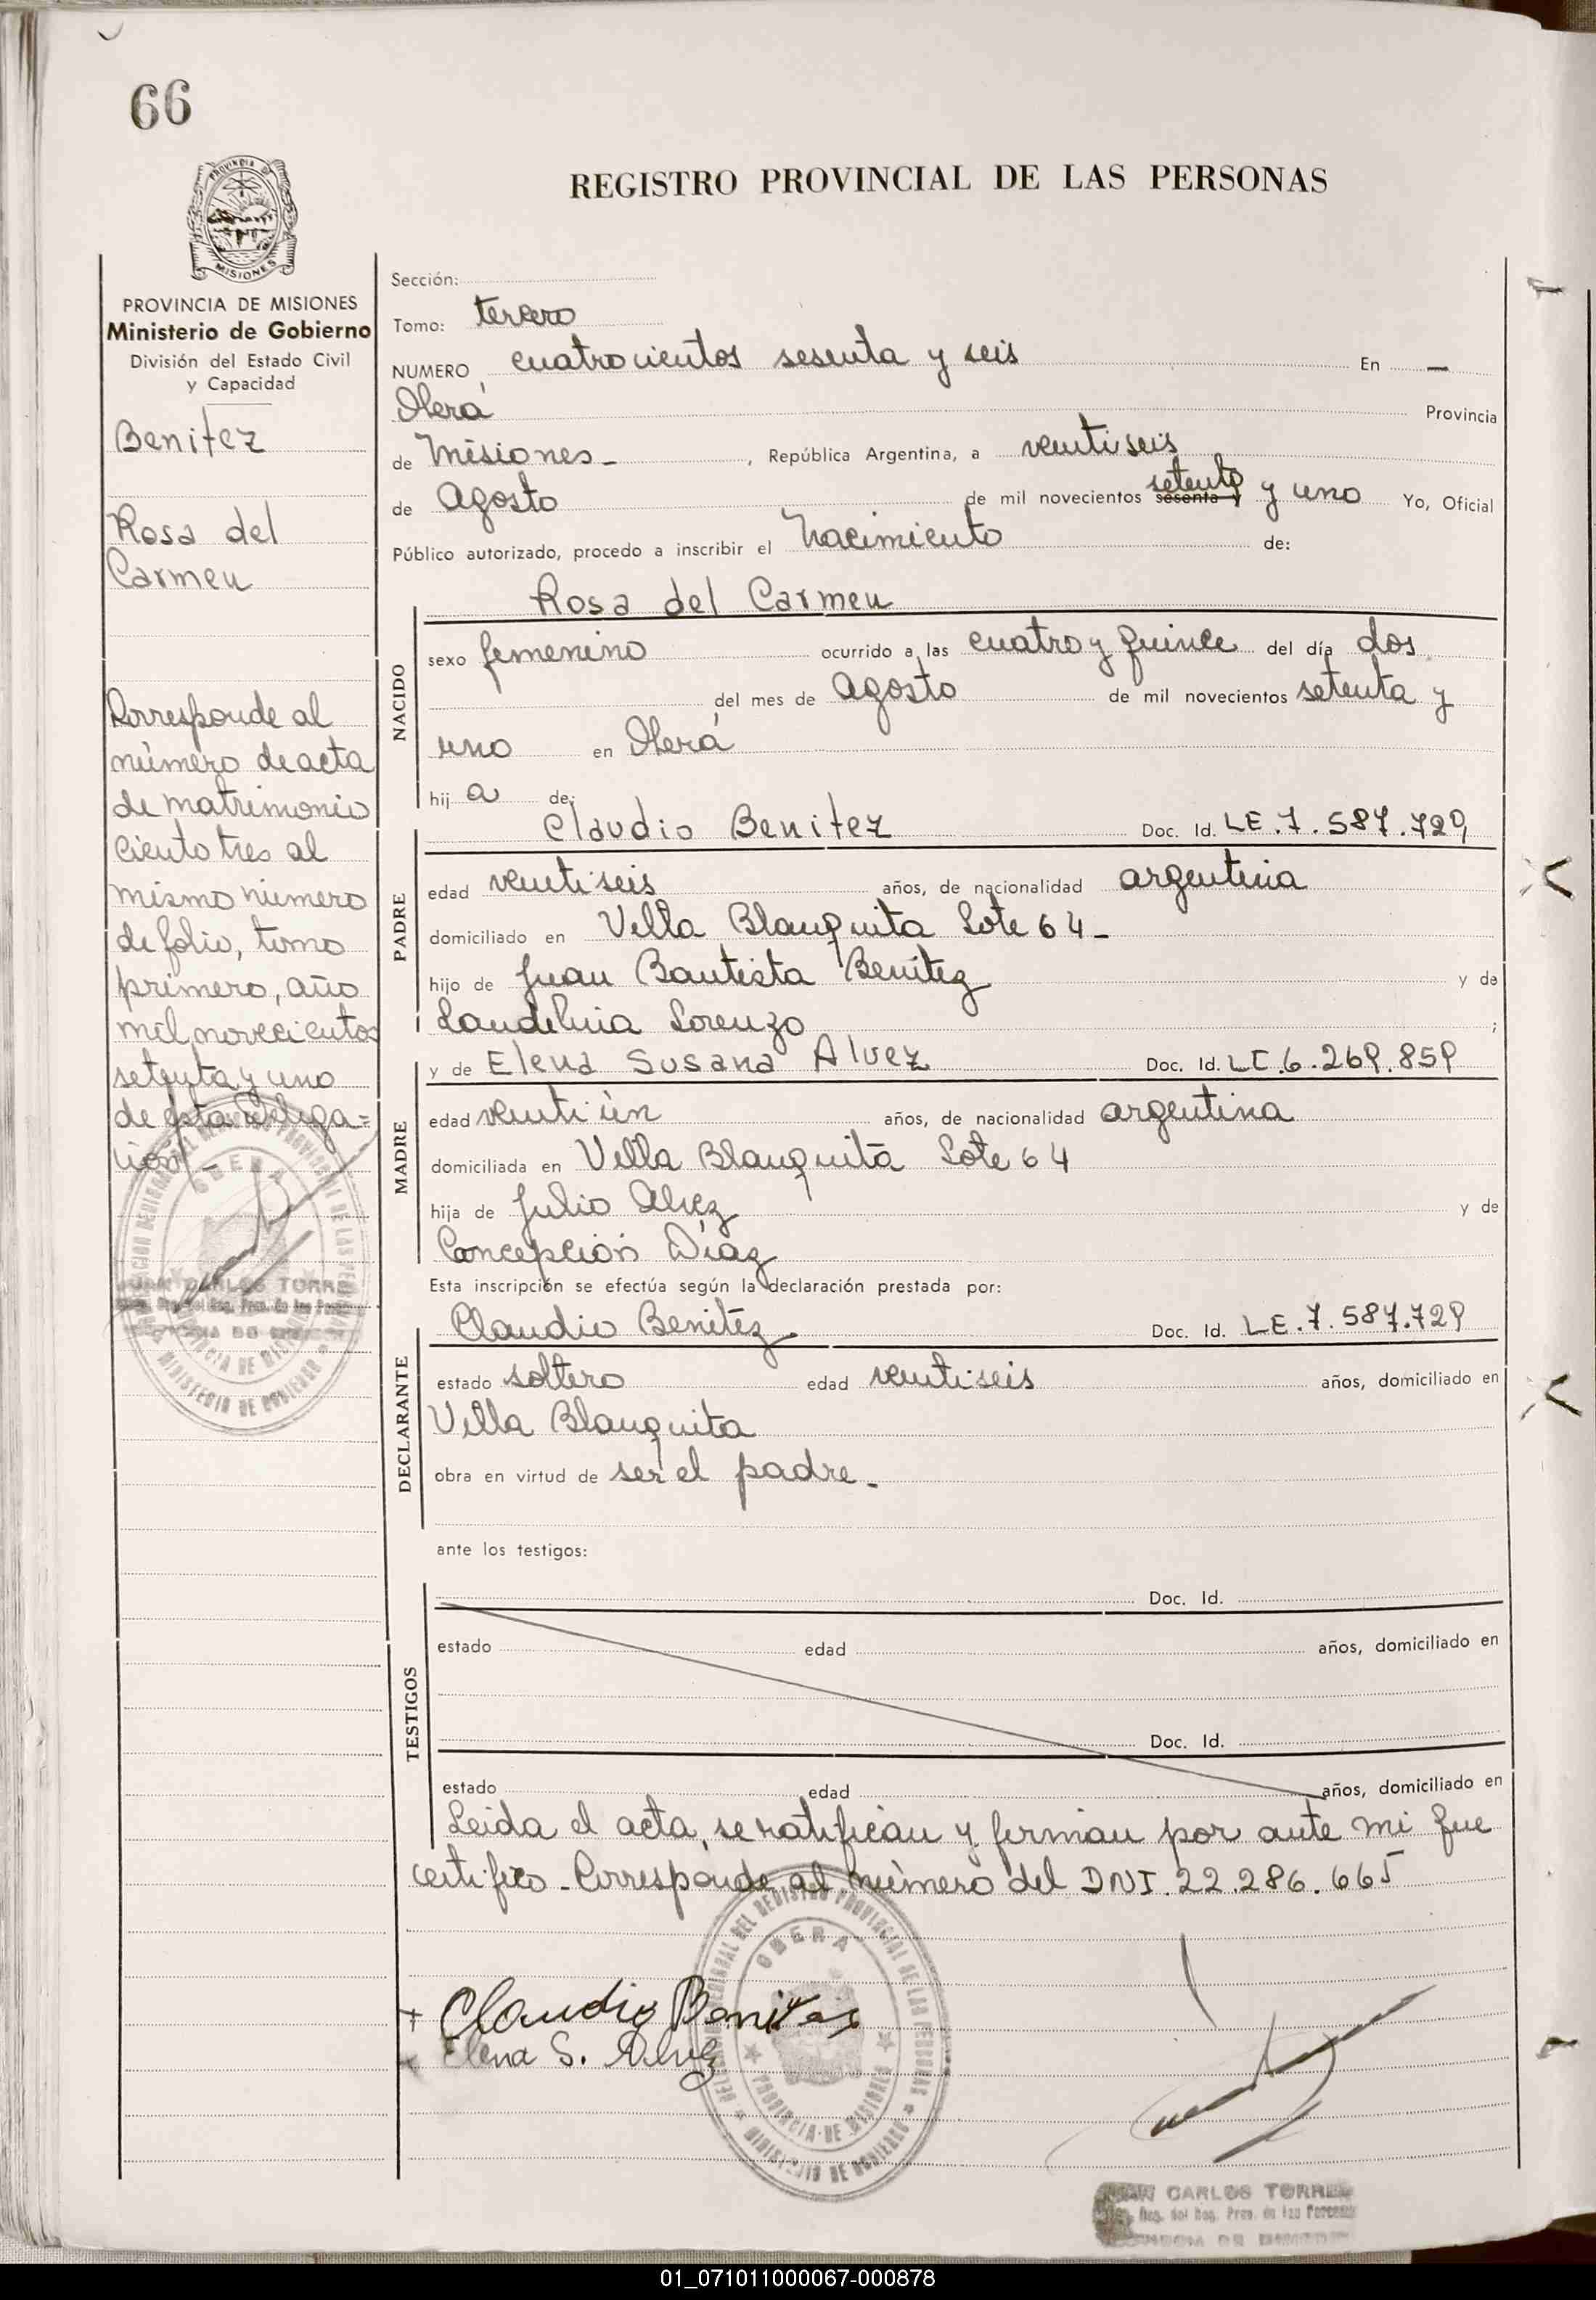 66
PROVINCIA
MISIONES
REGISTRO PROVINCIAL DE LAS PERSONAS
PROVINCIA DE MISIONES
Ministerio de Gobierno
División del Estado Civil
y Capacidad
Benitez
Rosa del
Carmen
Corresponde al
número de acta
de matrimonio
ciento tres al
mismo número
de folio, tomo
primero, año
mil novecientos
setenta y uno
de esta Delega=
ción -
OBERA
JUAN CARLOS TORRES
PROVINCIA DE MISIONES
MINISTERIO DE GOBIERNO
Sección:
Tomo: tercero
NUMERO cuatrocientos sesenta y seis En —
Oberá Provincia
de Misiones - , República Argentina, a veintiseis
de Agosto de mil novecientos sesenta y setenta y uno Yo, Oficial
Público autorizado, procedo a inscribir el Nacimiento de:
Rosa del Carmen
NACIDO
sexo femenino ocurrido a las cuatro y quince del día dos
del mes de Agosto de mil novecientos setenta y
uno en Oberá
hij a de:
Claudio Benitez Doc. Id. LE.7.587.729
PADRE
edad veintiseis años, de nacionalidad argentina
domiciliado en Villa Blanquita Lote 64 -
hijo de Juan Bautista Benítez y de
Laudelina Lorenzo ;
y de Elena Susana Alvez Doc. Id. LC.6.269.859
MADRE
edad veintiún años, de nacionalidad argentina
domiciliada en Villa Blanquita Lote 64
hija de Julio Alvez y de
Concepción Díaz
Esta inscripción se efectúa según la declaración prestada por:
Claudio Benítez Doc. Id. LE.7.587.729
DECLARANTE
estado soltero edad veintiseis años, domiciliado en
Villa Blanquita
obra en virtud de ser el padre -
ante los testigos:
Doc. Id.
TESTIGOS
estado edad años, domiciliado en
Doc. Id.
estado edad años, domiciliado en
Leida el acta, se ratifican y firman por ante mi que
certifico - Corresponde al número del DNI. 22.286.665
OBERA
PROVINCIA DE MISIONES
MINISTERIO DE GOBIERNO
Claudio Benitez
Elena S. Alvez
JUAN CARLOS TORRES
01_071011000067-000878